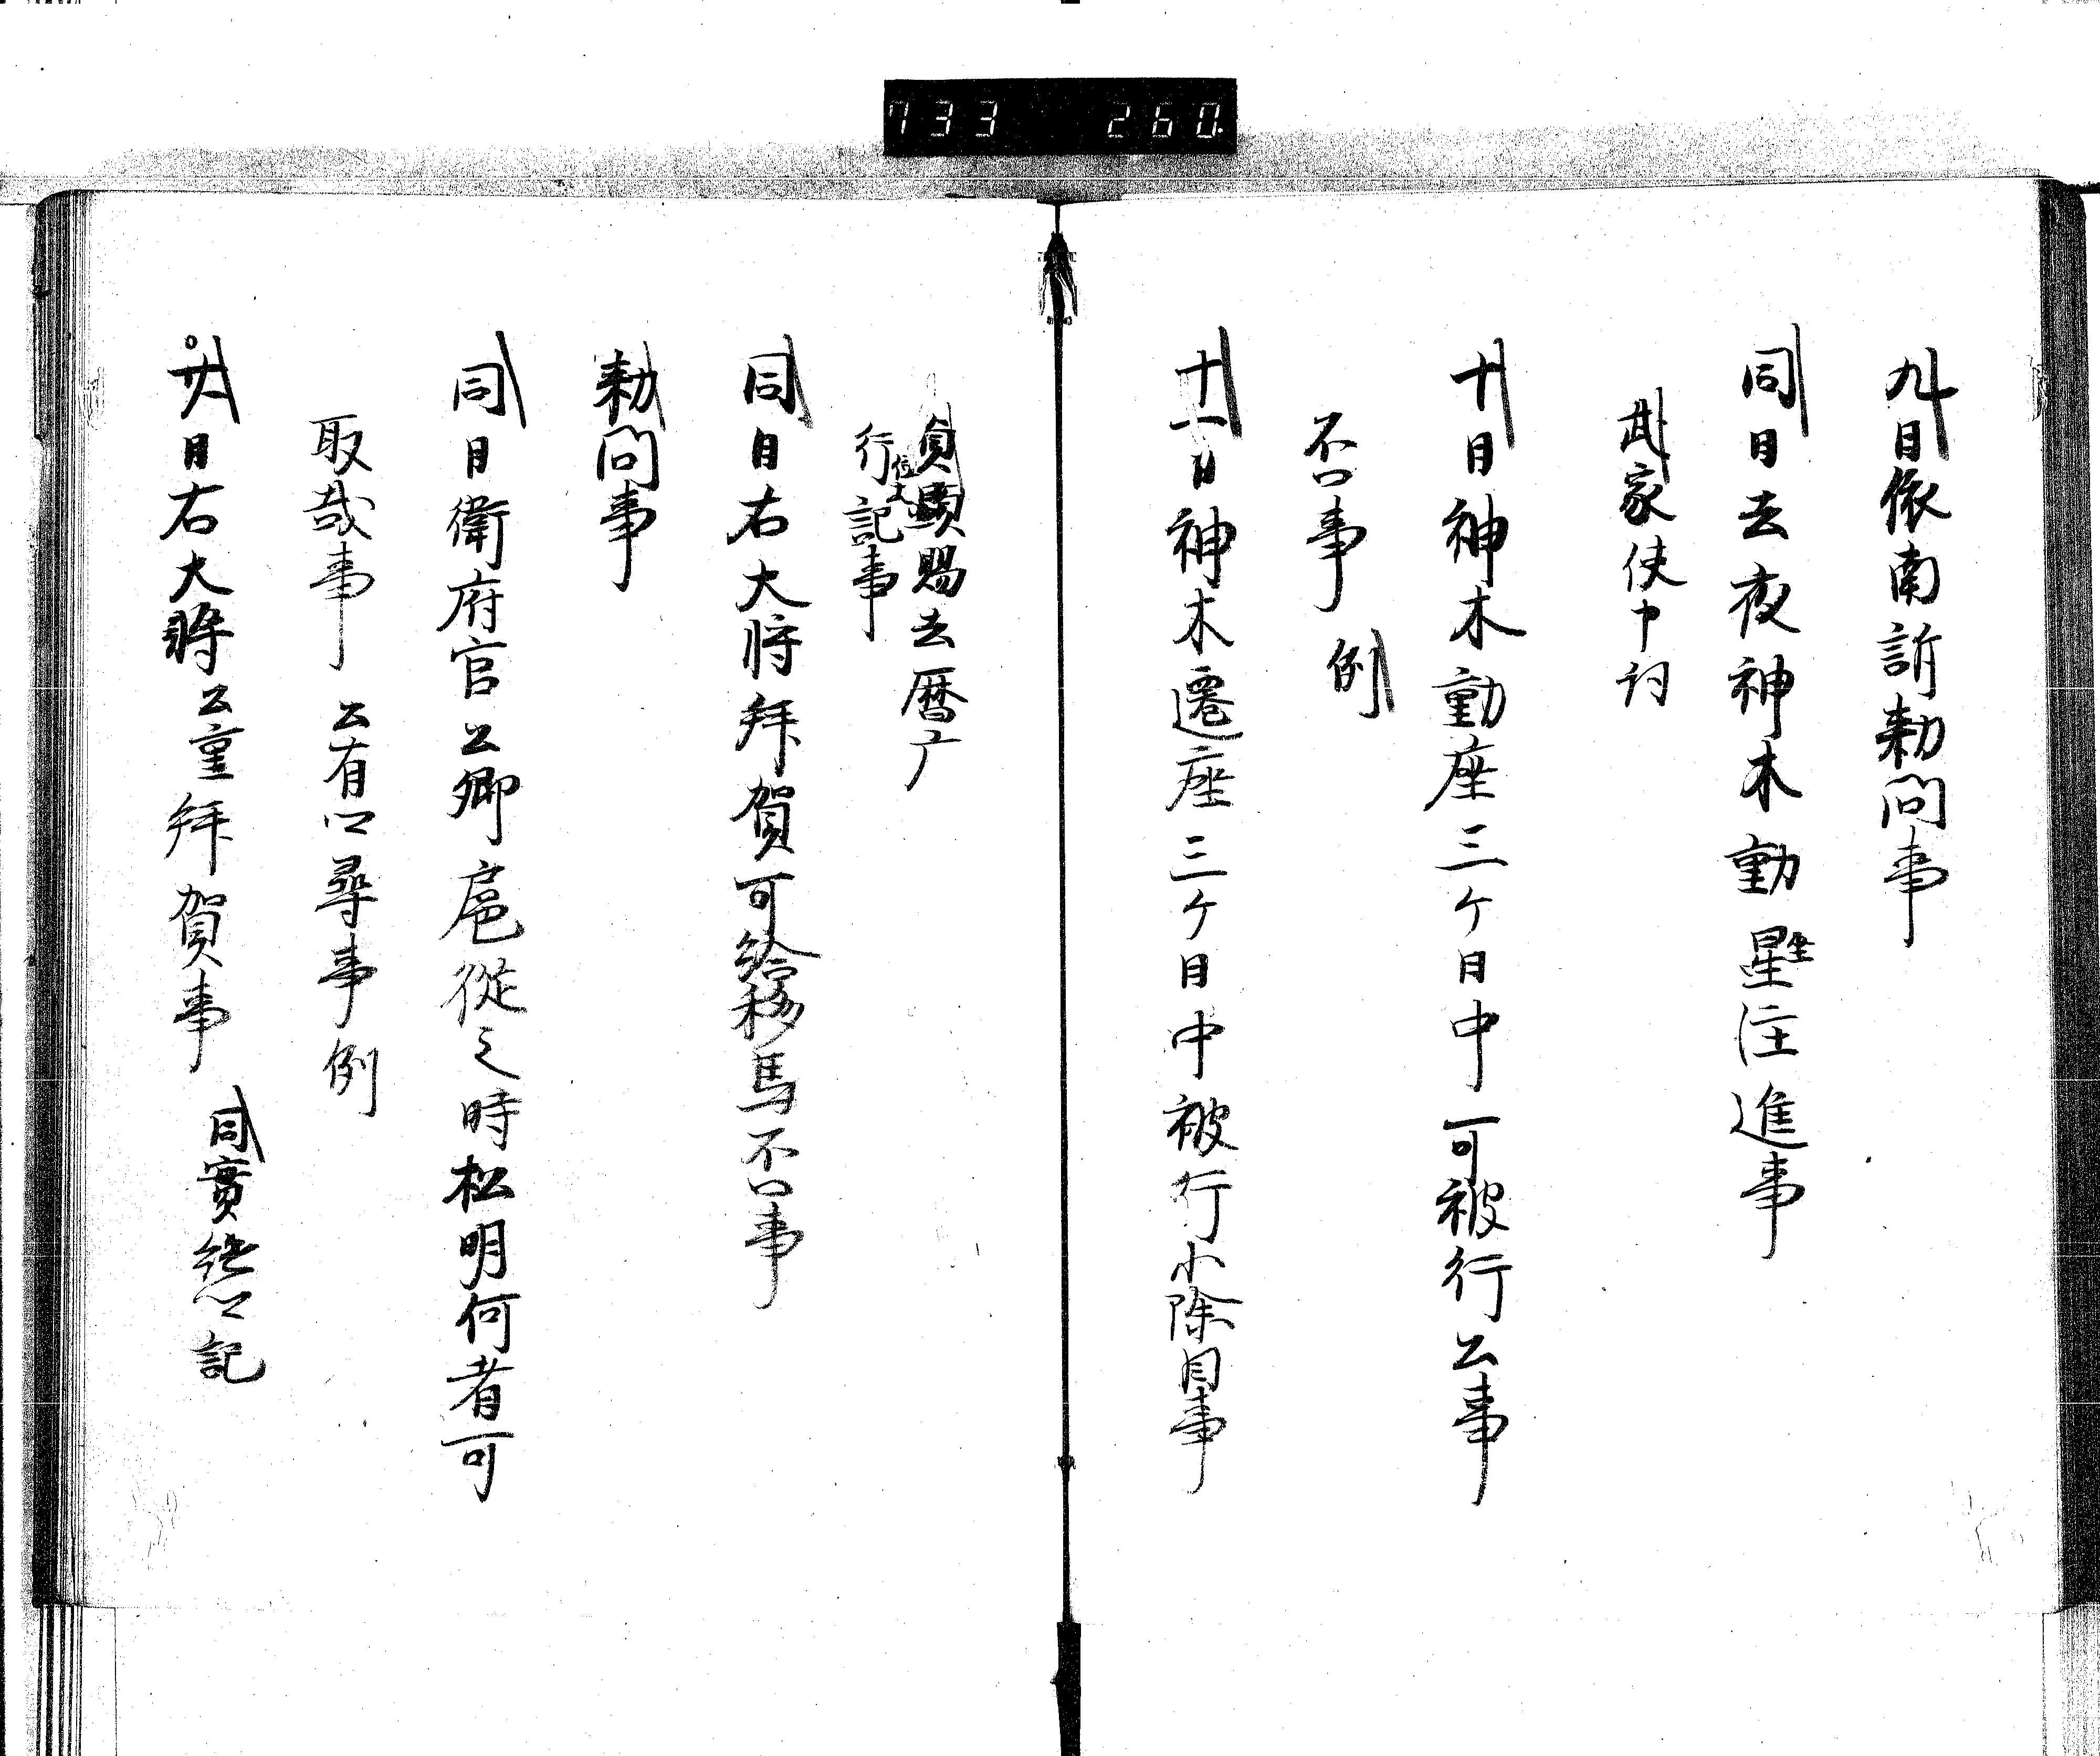 733 260.
九日依南訴勅問事
同日去夜神木動星坐注進事
武家使申詞
十日神木動座三ケ日中可被行公事
不口事 例
十一日神木遷座三ケ日中被行小除目事
員顕賜去暦广
行位記事
同日右大将拝賀可給移馬不口事
勅問事
同日衛府官公卿扈従之時松明何者可
取哉事 公有口尋事例
廿八日右大将公重拝賀事 同實継公記